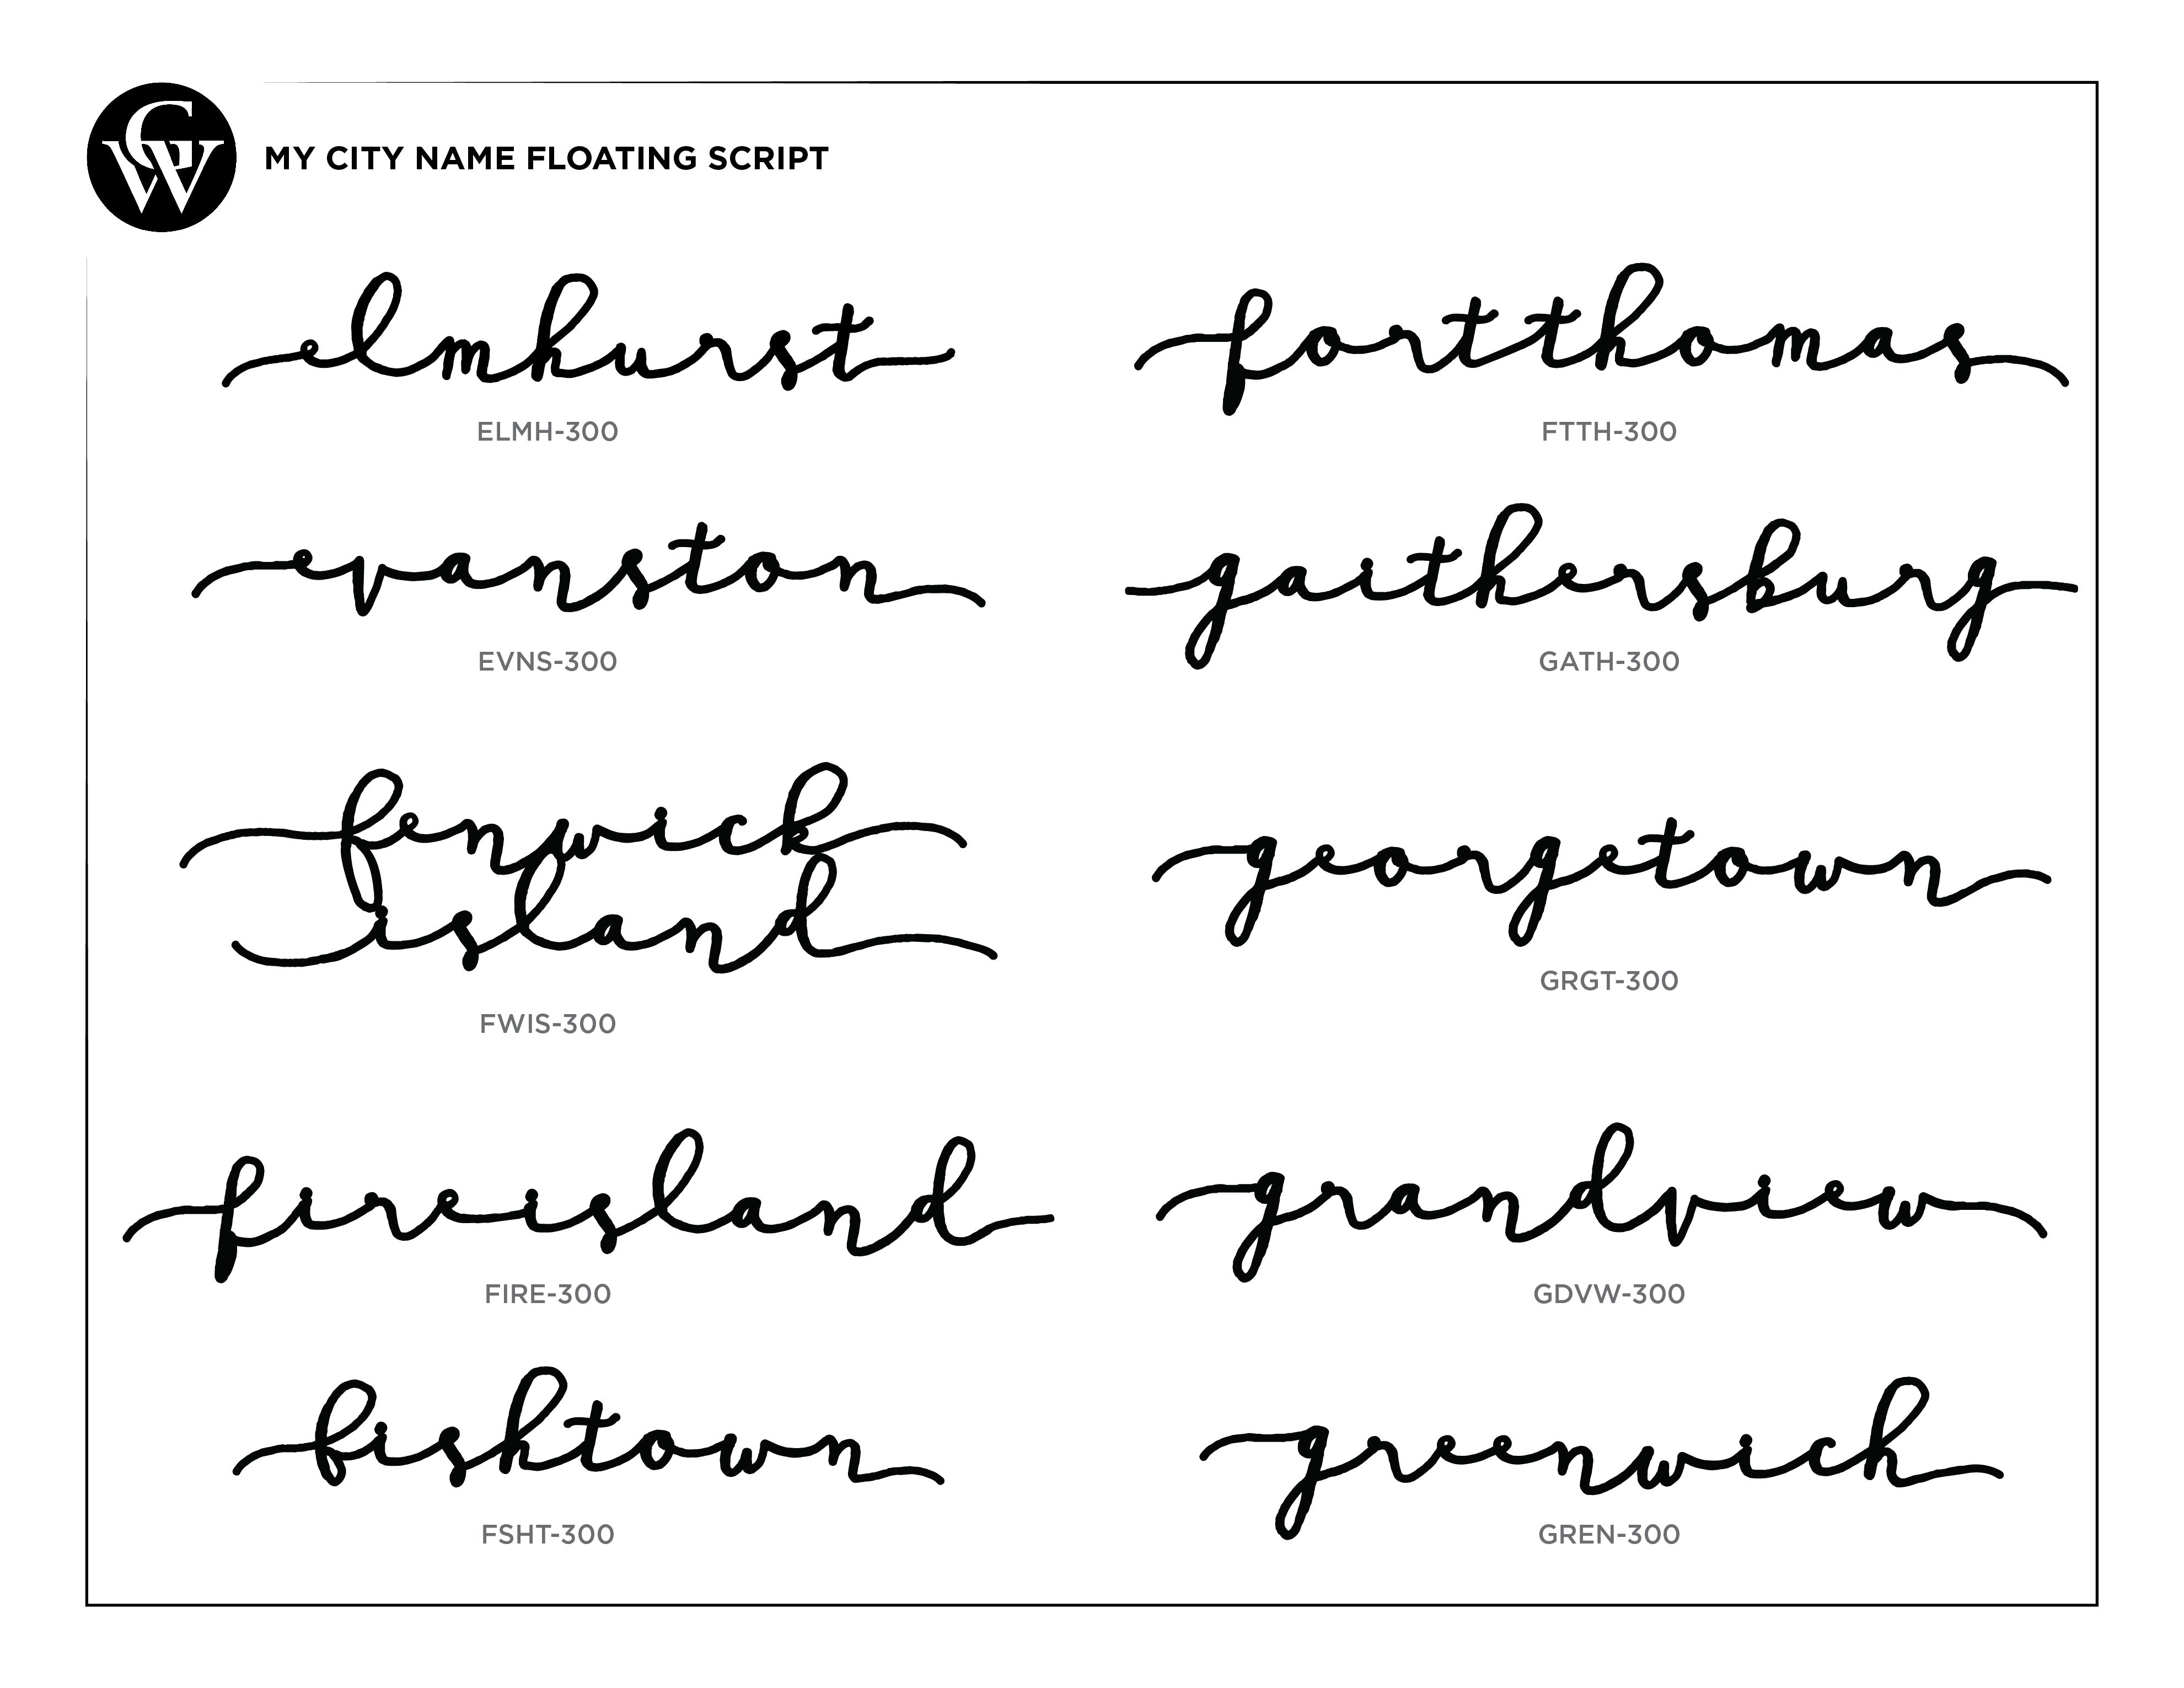 GW
MY CITY NAME FLOATING SCRIPT
elmhurst
ELMH-300
fortthomas
FTTH-300
evanston
EVNS-300
gaithersburg
GATH-300
fenwick
island
FWIS-300
georgetown
GRGT-300
fireisland
FIRE-300
grandview
GDVW-300
fishtown
FSHT-300
greenwich
GREN-300